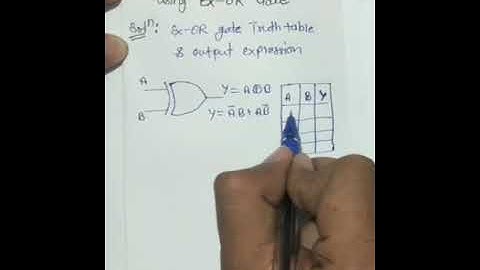 using Ex-OR Gate
Solⁿ: Ex-OR gate Truth table
& output expression
A
B
Y = A⊕B
Y = A̅B + AB̅
A B Y